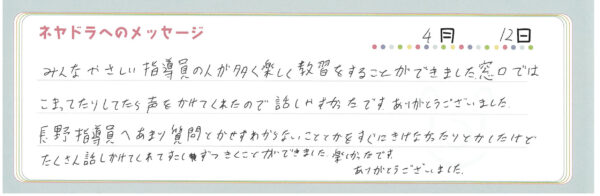 ネヤドラへのメッセージ
4月 12日
みんなやさしい指導員の人が多く楽しく教習をすることができました。窓口では
こまってたりしてたら声をかけてくれたので話しやすかったです。ありがとうございました。
長野指導員へあまり質問とかせずわからないこととかをすぐにきけなかったりとかしたけど
たくさん話しかけてくれてすこしずつきくことができました。楽しかったです
ありがとうございました。